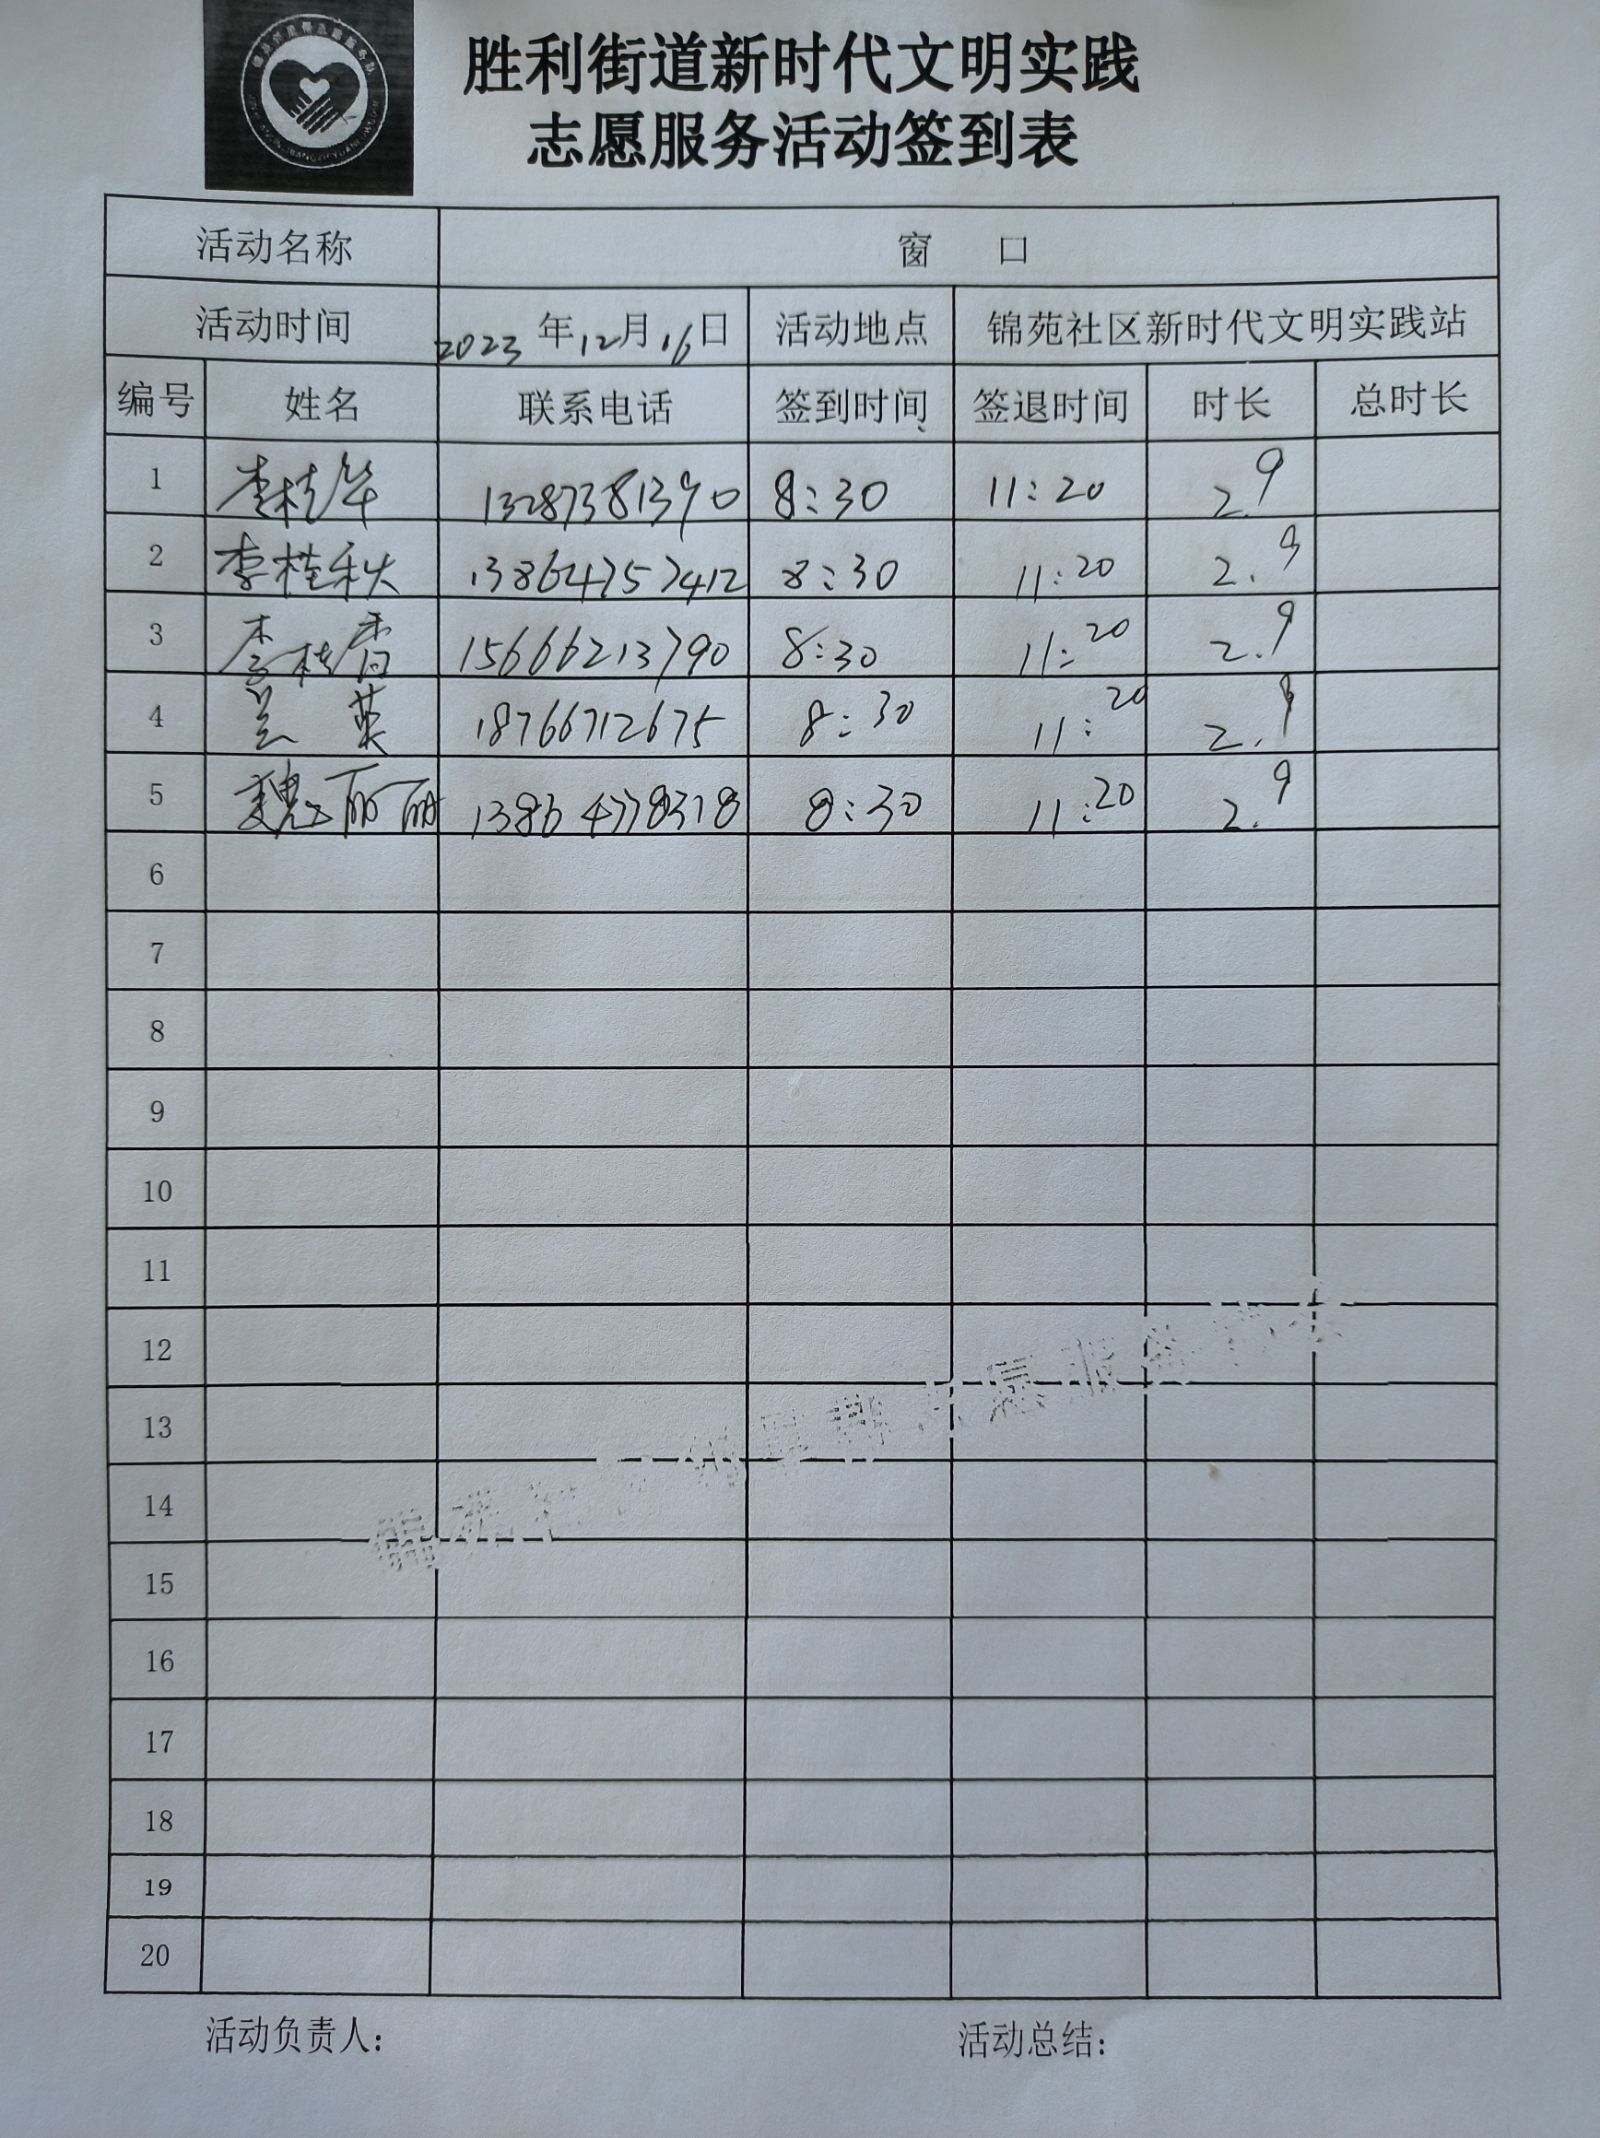 胜利街道新时代文明实践
志愿服务活动签到表
活动名称 窗 口
活动时间 2023年12月16日 活动地点 锦苑社区新时代文明实践站
编号 姓名 联系电话 签到时间 签退时间 时长 总时长
1 李桂华 13287381390 8:30 11:20 2.9
2 李桂秋 13864757412 8:30 11:20 2.9
3 李桂香 15666213790 8:30 11:20 2.9
4 兰英 18766712675 8:30 11:20 2.9
5 魏丽丽 13864778318 8:30 11:20 2.9
6
7
8
9
10
11
12
13
14
15
16
17
18
19
20
活动负责人: 活动总结: